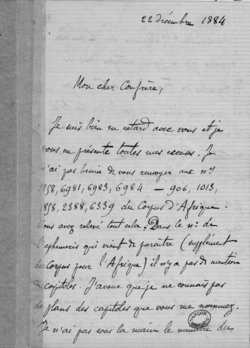 22 décembre 1884
Mon cher Confrère,
Je suis bien en retard avec vous et je
vous en présente toutes mes excuses. Je
n'ai pas besoin de vous renvoyer aux nos
958, 6981, 6983, 6984 — 906, 1013,
958, 2388, 6339 du Corpus d'Afrique.
Vous avez relevé tout cela. Dans le no de
l'ephemeris qui vient de paraître (supplement
du Corpus pour l'Afrique) il n'y a pas de mention
de capitoles. J'avoue que je ne connais pas
de plans des capitoles que vous me nommez.
Je n'ai pas sous la main le mémoire de